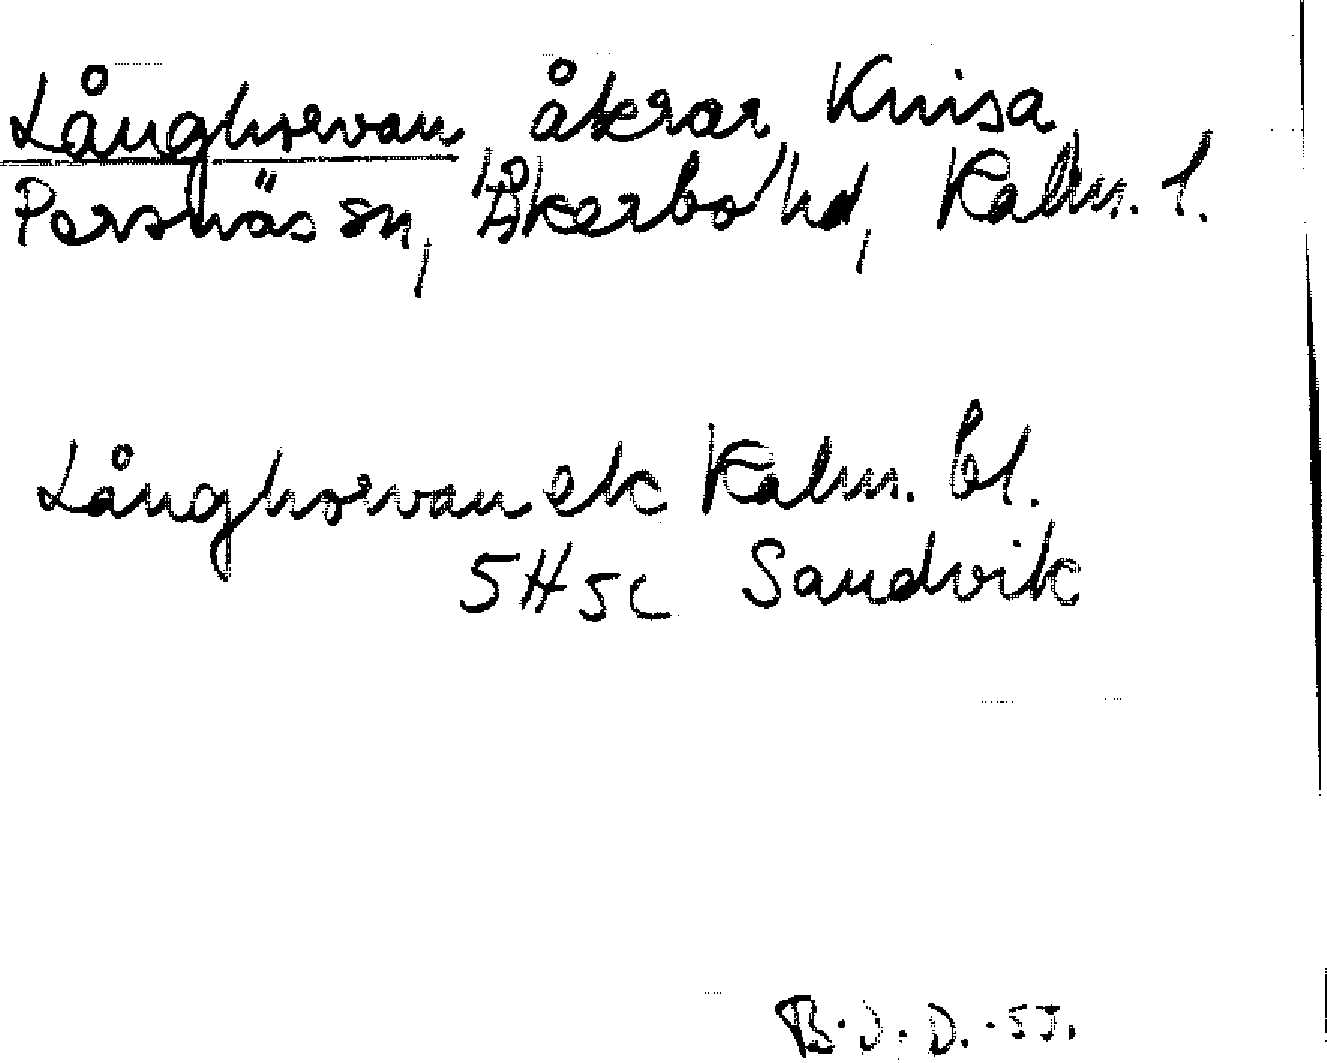 Långhorvan åkrar, Knisa,
Persnäs sn, Åkerbo hd, Kalm. l.
Långhorvan ek Kalm. bl.
5H5c Sandvik
B.J.D. -55.